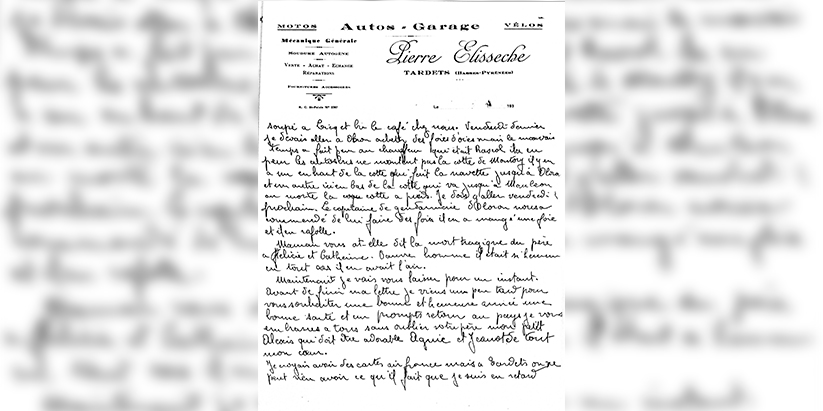 MOTOS Autos - Garage VÉLOS
Mécanique Générale
SOUDURE AUTOGÈNE
VENTE - ACHAT - ECHANGE
RÉPARATIONS
FOURNITURES ACCESSOIRES
Pierre Elisseche
TARDETS (BASSES-PYRÉNÉES)
soupé a et bu le café chez nous. Vendredi dernier
je devais aller a Oloron acheter des foies d'oies mais le mauvais
temps a fait peur au chauffeur qui était Raoul du en
peur les autobus ne montent pas la cotte de Montory il y en
a un en haut de la cotte qui fait la navette jusqu'à Olo
et un autre ici en bas de la cotte qui va jusqu'à Mauleon
on monte la cotte a pieds. Je dois y aller vendredi
prochain. Le capitaine de gendarmerie d'Oloron nous a
commandé de lui faire des fois il en a mangé une fois
et il en rafolle.
Maman vous at elle dit la mort tragique du père
a Félicie et Catherine. Pauvre homme il était si heureux
en tout cas il en avait l'air.
Maintenant je vais vous laisser pour un instant.
Avant de finir ma lettre je viens un peu tard pour
vous souhaiter une bonne et heureuse année une
bonne santé et un prompts retour au pays je vous
embrasse a tous sans oublier votre père mon petit
Alexis qui doit être adorable et Jeanot de tout
mon cœur.
Je croyais avoir des cartes air france mais a Tardets on ne
peut rien avoir ce qu'il fait que je suis en retard